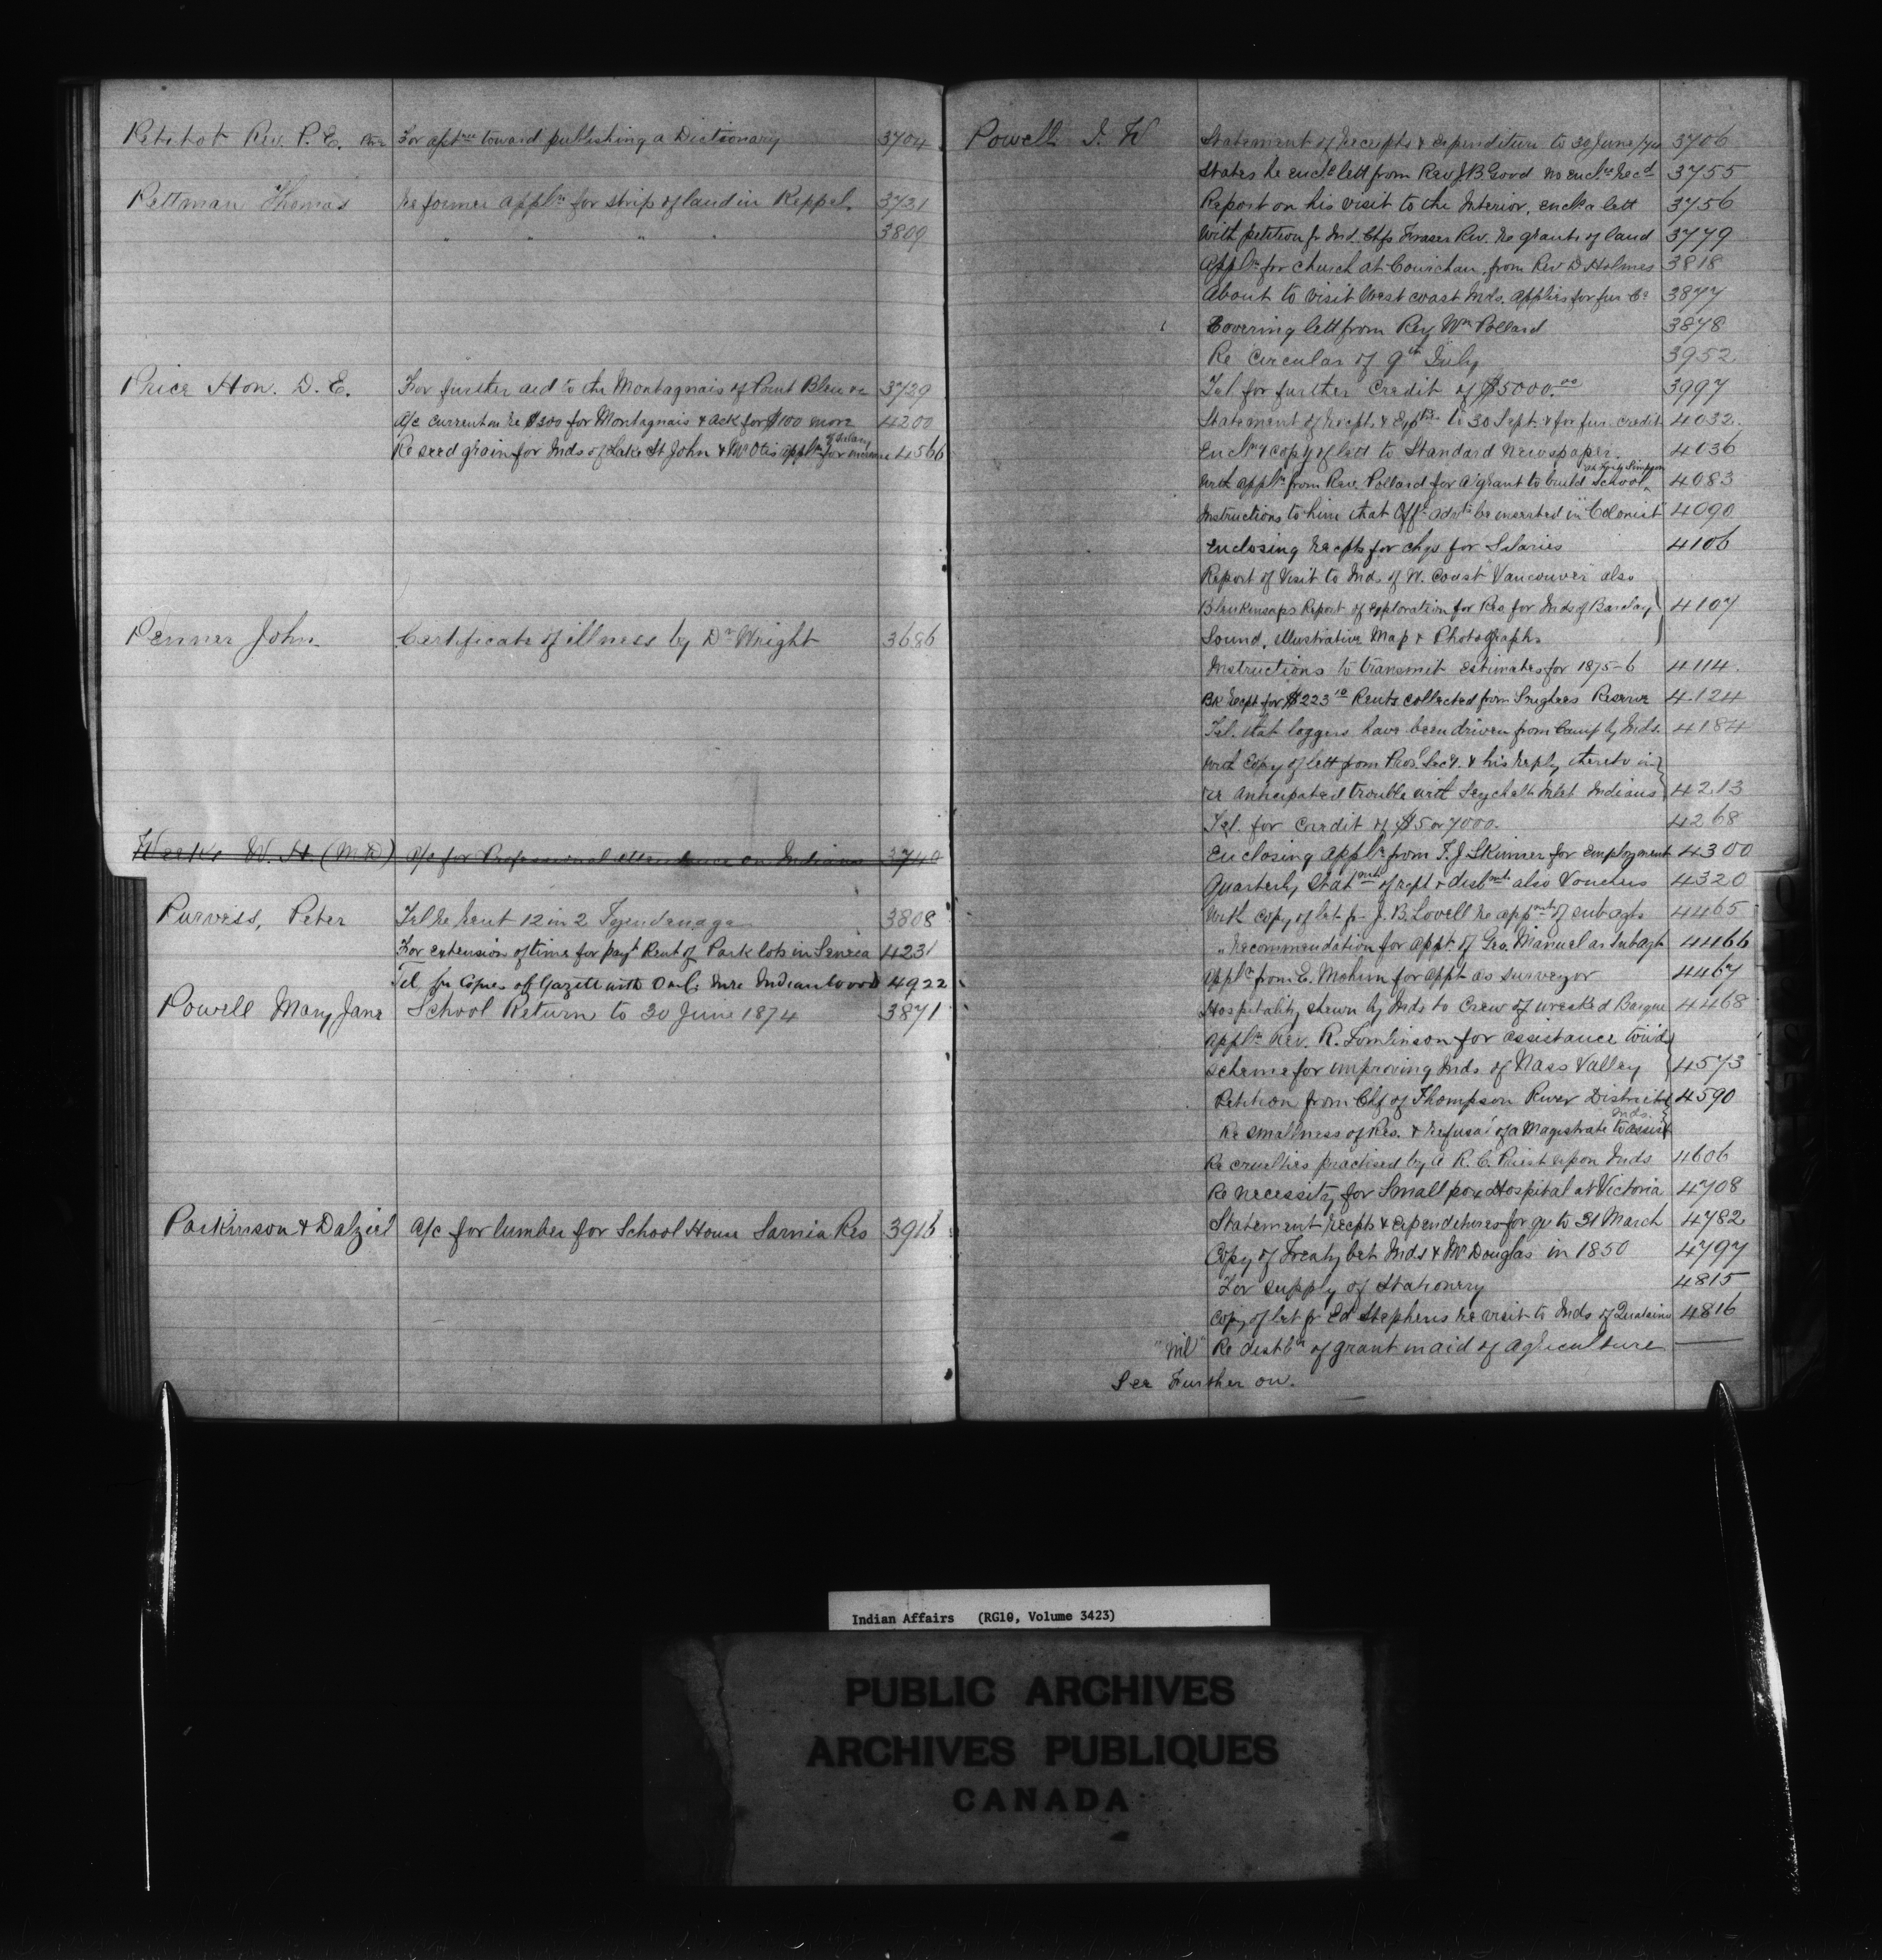 Petitot Rev. P. E. For apt nce toward publishing a Dictionary 3704
Pettman Thomas Re former appln for strip of land in Keppel. 3731
" " " " 3809
Price Hon. D. E. For further aid to the Montagnais of Point Bleu 3729
A/c current re $300 for Montagnais & ack for $100 more 4200
Re seed grain for Inds of Lake St John & Mr Otis appln for increase of salary 4566
Penner John Certificate of illness by Dr Wright 3686
Weeks W. H (MD) A/c for Professional attendance on Indians 3740
Purviss, Peter Tel re rent 12 in 2 Tyendenaga 3808
For extension of time for payt Rent of Park lots in Seneca 4231
Tel for Copies of Gazette with O in C. 4922
Powell Mary Jane School Return to 30 June 1874 3871
Parkinson & Dalziel A/c for lumber for School House Sarnia Res 3916
Powell I. W Statement of Receipts & expenditure to 30 June /74 3706
States he encls lett from Rev J. B Good no encls recd 3755
Report on his visit to the Interior, encls a lett 3756
With petition fr Ind. Chfs Fraser Riv. re grants of land 3779
Appln for church at Cowichan, from Rev D Holmes 3818
About to visit West coast Inds. applies for fur. Cr 3877
Covering lett from Rev Wm Pollard 3878
Re Circular of 9th July 3952
Tel for further Credit of $5000.00 3997
Statement of Recpt. & Exptre to 30 Sept. & for fur. credit 4032
Enclng copy of lett to Standard Newspaper. 4036
With appln from Rev. Pollard for a grant to build school at Fort Simpson 4083
Instructions to him that Offl advts be inserted in "Colonist" 4090
Enclosing recpts for chqs for Salaries 4106
Report of Visit to Inds of W. Coast Vancouver also
Blenkinsops Report of exploration for Res for Inds of Barclay 4107
Sound, illustrative Map & Photographs
Instructions to transmit estimates for 1875-6 4114
Bk recpt for $223 10 Rents collected from Songhees Reserve 4124
Tel. that loggers have been driven from Camp by Inds. 4184
With Copy of lett from Prov. Secy. & his reply thereto in
re anticipated trouble with Seychelt Inlet Indians 4213
Tel. for Credit of $5 or 7000. 4268
Enclosing appln from T. J Skinner for Employment 4300
Quarterly Statmt of rect & disbmt also Vouchers 4320
With copy of let fr J. B. Lovell re appmt of subagts 4465
" Recommendation for appt. of Geo. Manuel as Subagt 4466
Appln from E. Mohun for appt as surveyor 4467
Hospitality shewn by Inds to Crew of wrecked Barque 4468
Appln Rev. R. Tomlinson for assistance tow'ds
scheme for improving Inds of Nass Valley 4573
Petition from Chf of Thompson River District 4590
Re smallness of Res. & refusal of a Magistrate to assist Inds.
Re cruelties practised by a R. C. Priest upon Inds 4606
Re necessity for Small pox Hospital at Victoria 4708
Statement recpts & expenditures for qr to 31 March 4782
Copy of Treaty bet Inds & Mr Douglas in 1850 4797
For supply of Stationery 4815
Copy of let fr Ed Stephens re visit to Inds of 4816
"Nil" Re distbn of grant in aid of agriculture
See Further on.
Indian Affairs (RG10, Volume 3423)
PUBLIC ARCHIVES
ARCHIVES PUBLIQUES
CANADA